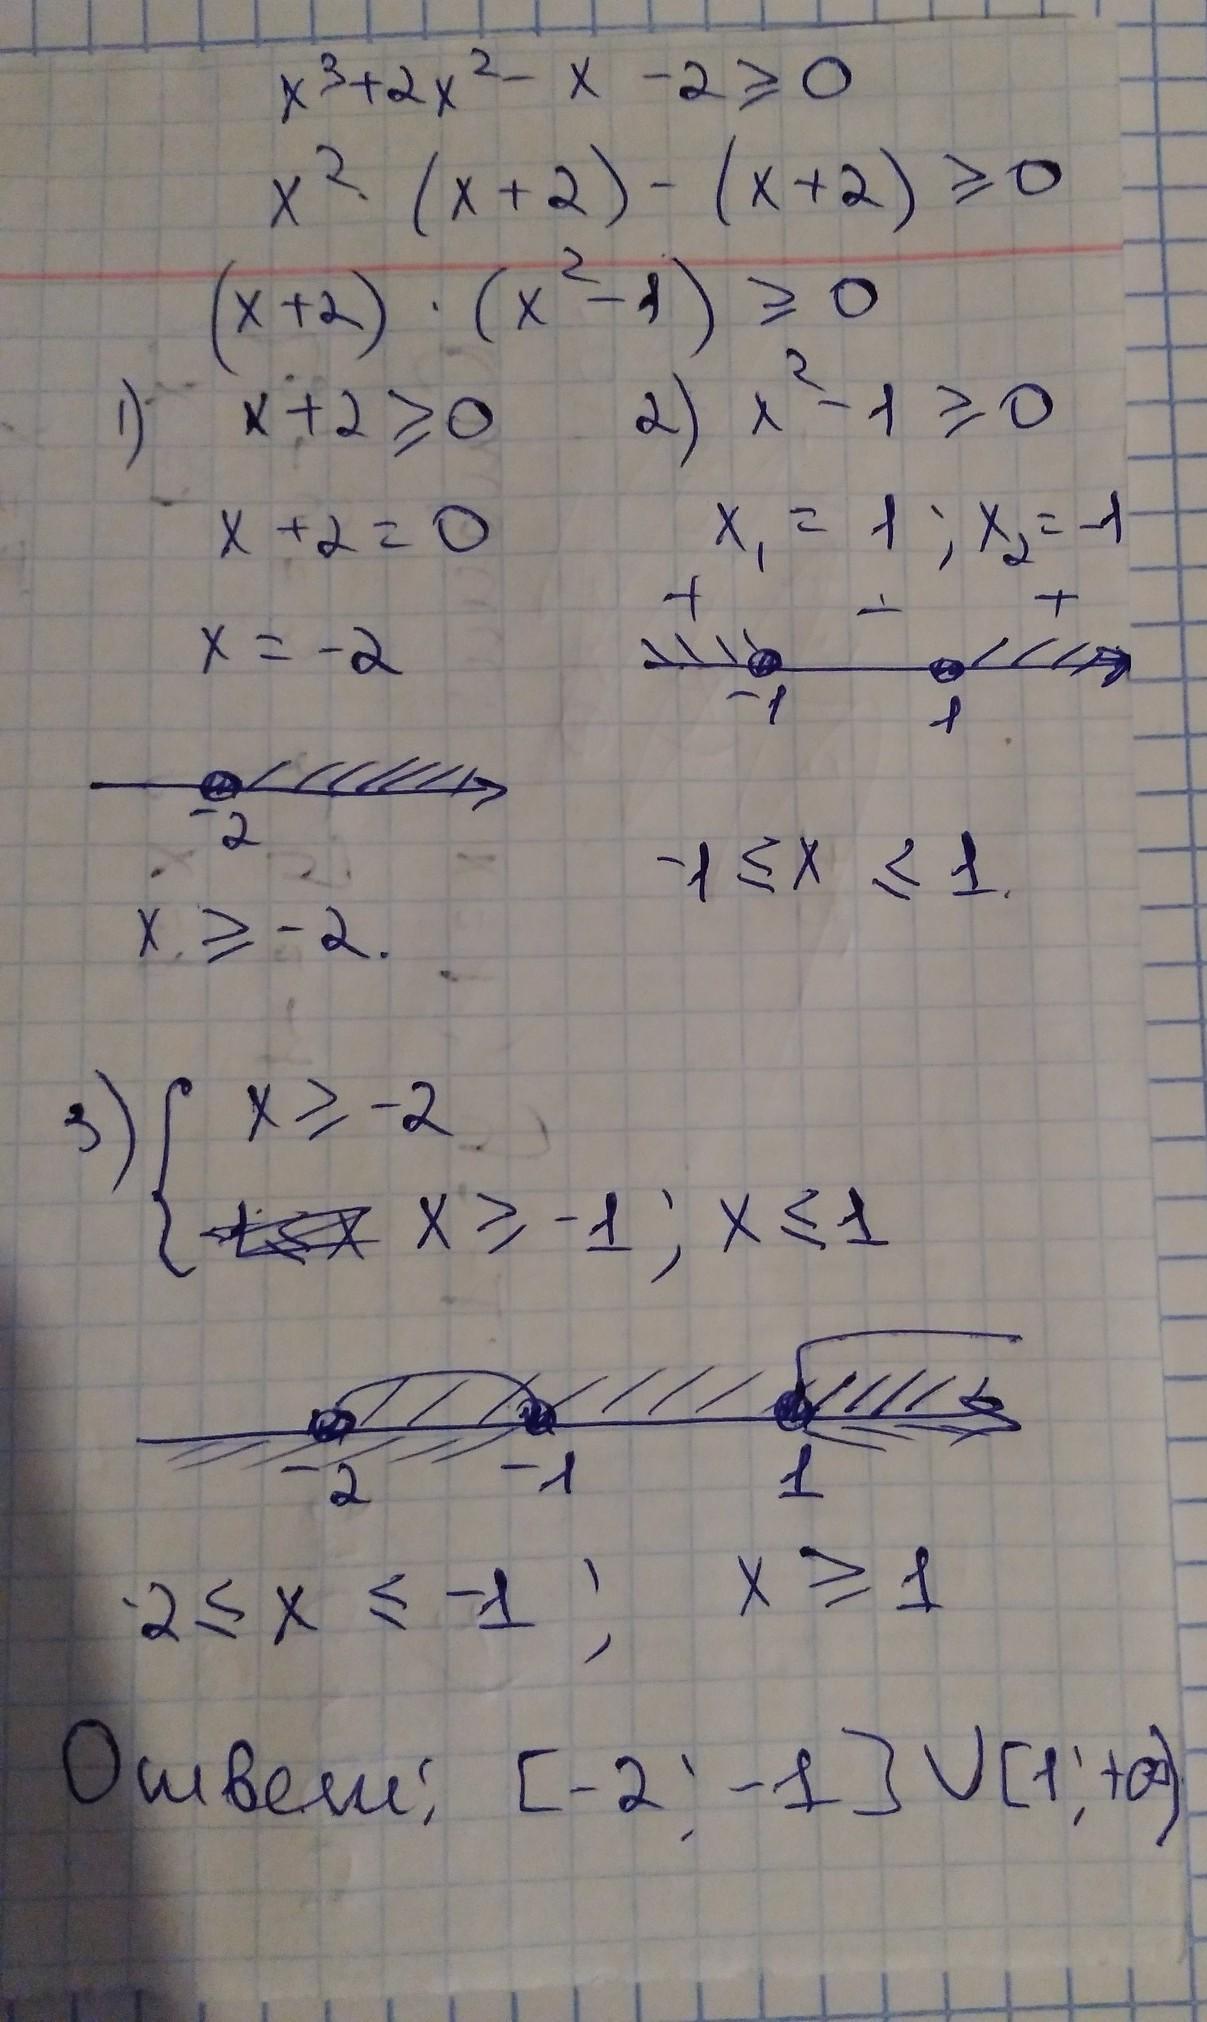 x³+2x²- x -2 ≥ 0
x² · (x+2) - (x+2) ≥ 0
(x+2) · (x²-1) ≥ 0
1) x+2 ≥ 0
x+2=0
x = -2
-2
x ≥ -2.
2) x²-1 ≥ 0
x₁ = 1 ; x₂ = -1
+ - +
-1 1
-1 ≤ x ≤ 1.
3) { x ≥ -2
x ≥ -1 ; x ≤ 1
-2 -1 1
-2 ≤ x ≤ -1 ; x ≥ 1
Ответ: [-2 ; -1] ∪ [1; +∞)